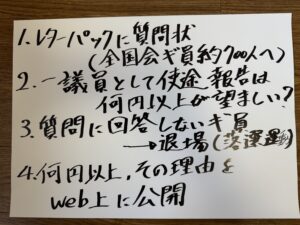 1.レターパックに質問状
(全国会ギ員約700人へ)
2.一議員として使途報告は
何円以上が望ましい?
3.質問に回答しないギ員
→退場(落選運動)
4.何円以上,その理由を
web上に公開